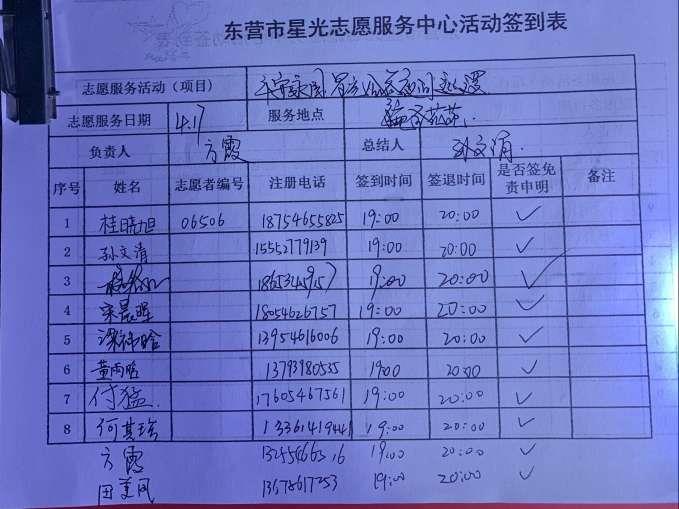 东营市星光志愿服务中心活动签到表
志愿服务活动（项目）
志愿服务日期 4.17 服务地点
负责人 方霞 总结人 孙文清
序号 姓名 志愿者编号 注册电话 签到时间 签退时间 是否签免责申明 备注
1 桂晓旭 06506 18754655825 19:00 20:00 ✓
2 孙文清 15552779139 19:00 20:00 ✓
3 19:00 20:00 ✓
4 宋晨晖 18054626757 19:00 20:00 ✓
5 13954616006 19:00 20:00 ✓
6 13793980535 19:00 20:00 ✓
7 付猛 17605467561 19:00 20:00 ✓
8 13361419441 19:00 20:00 ✓
方霞 19:00 20:00 ✓
田美凤 19:00 20:00 ✓